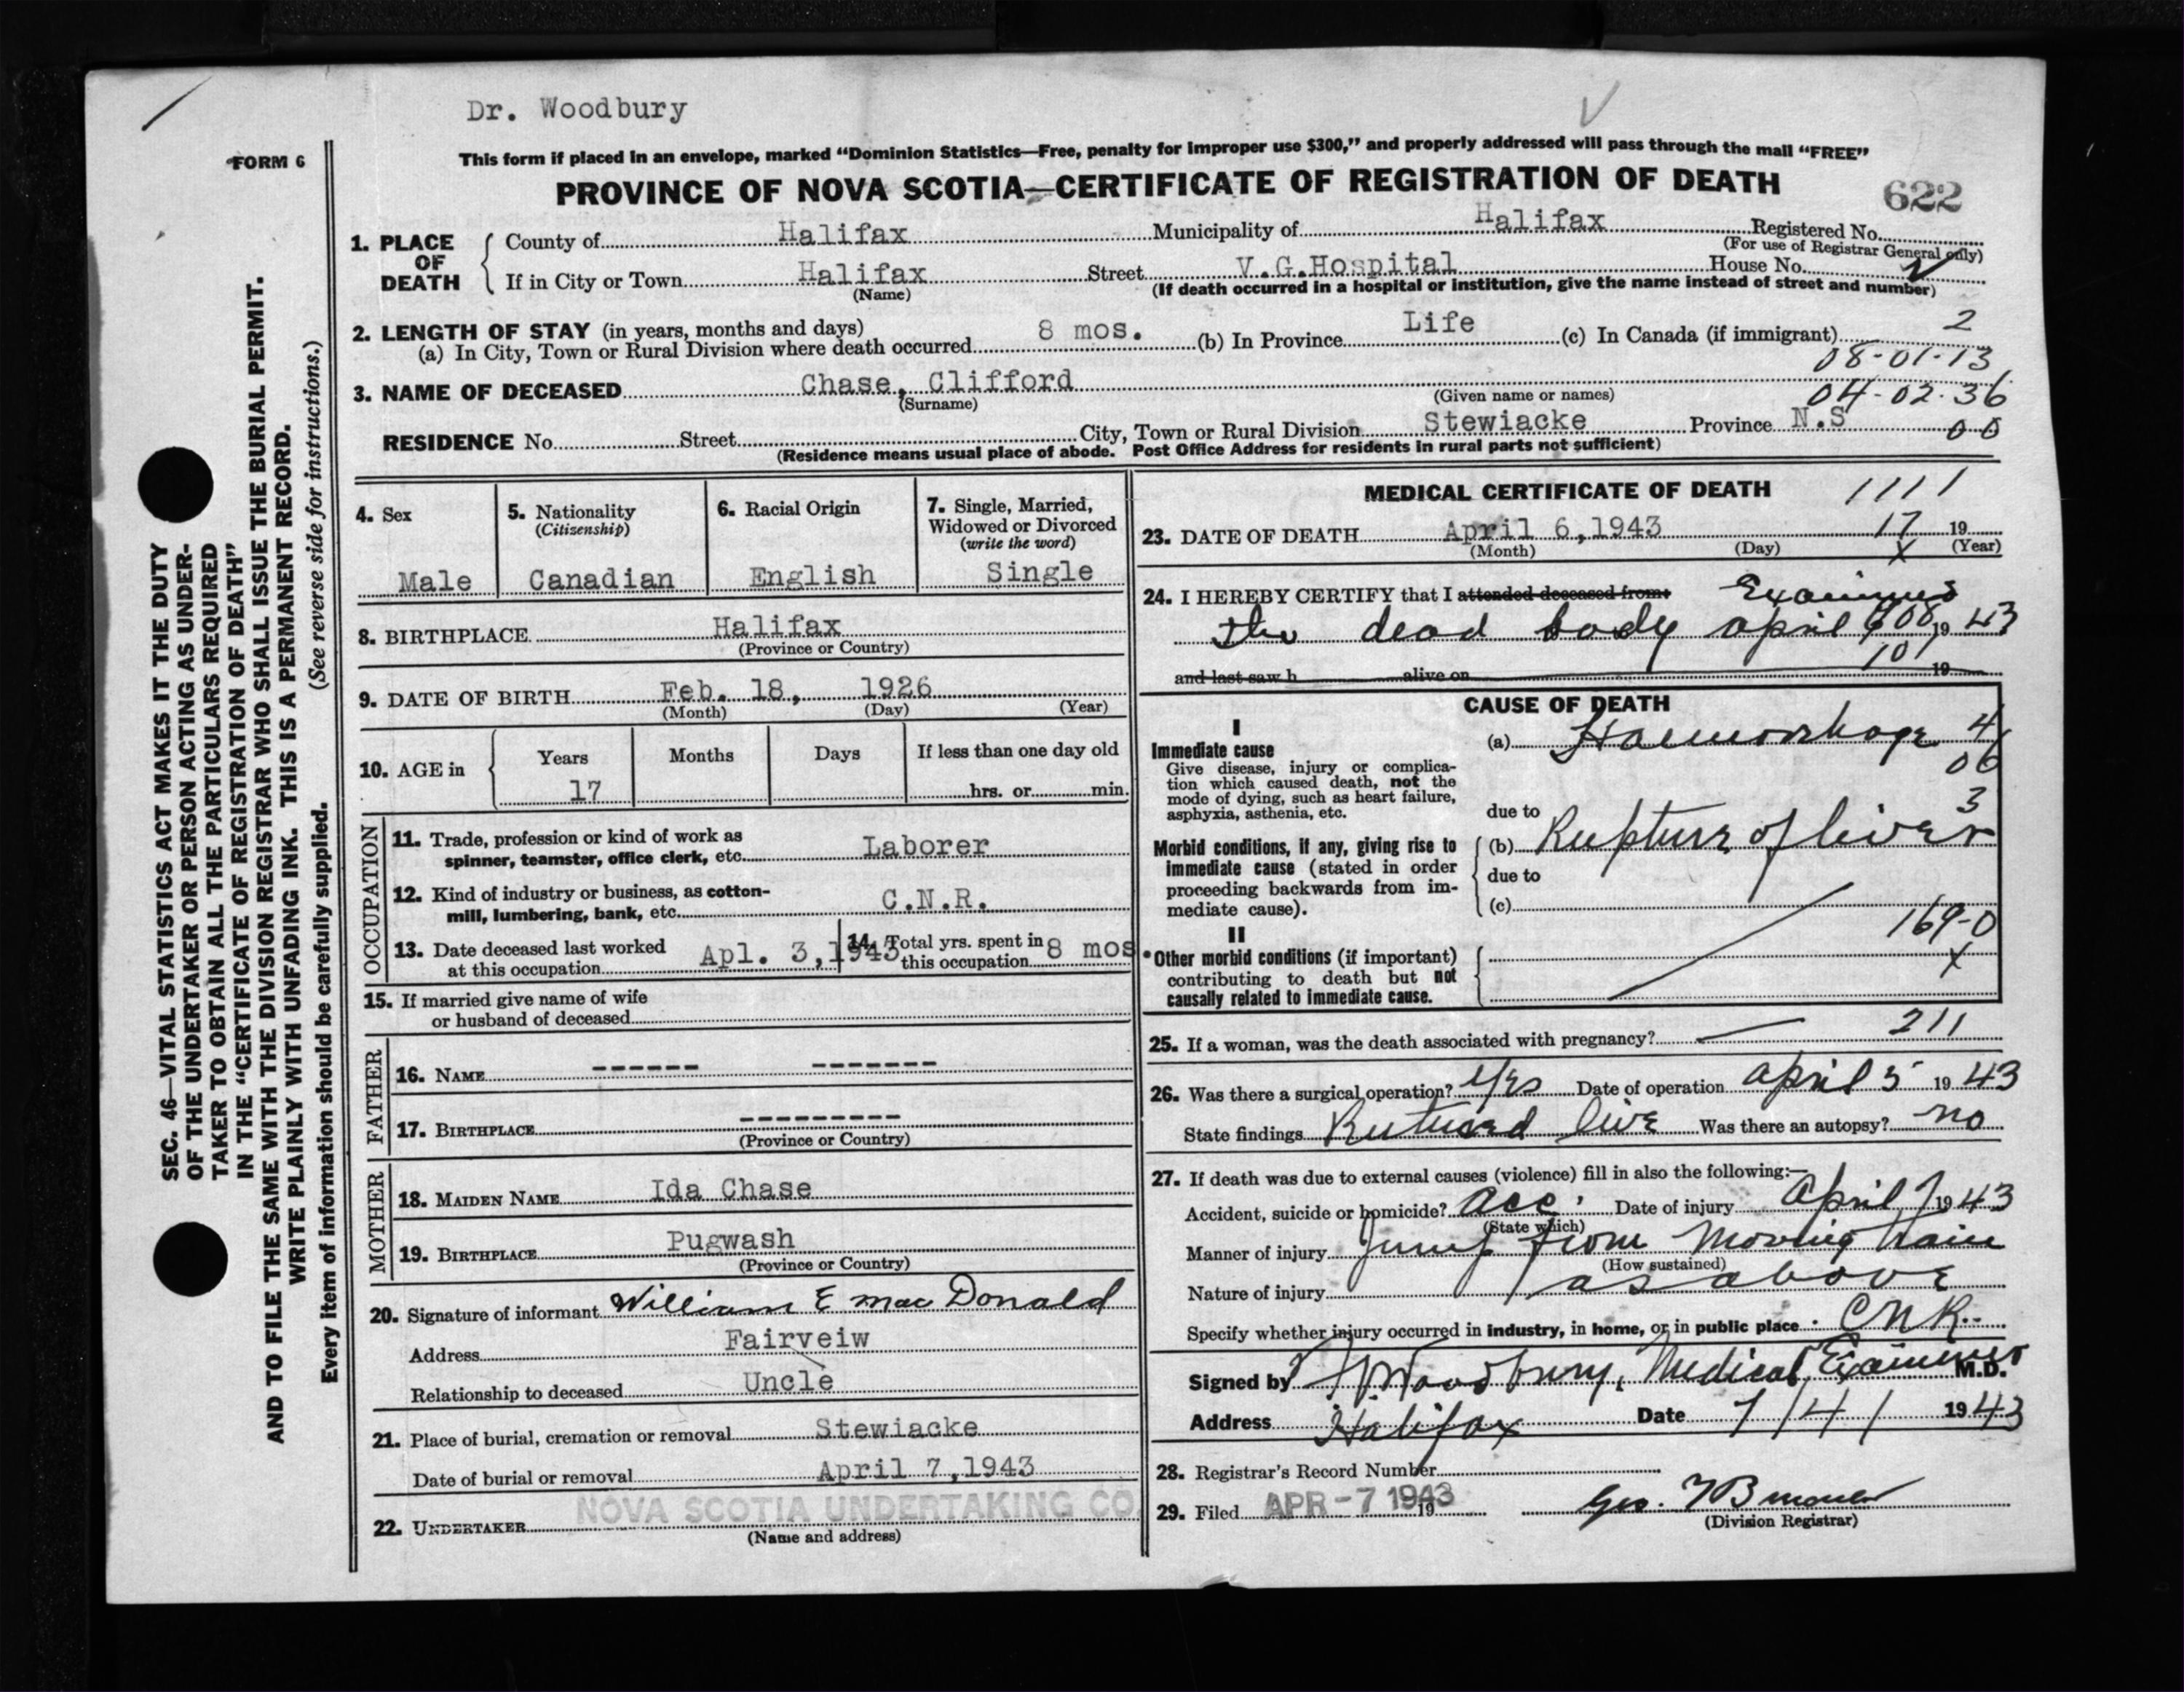 Dr. Woodbury
FORM 6
This form if placed in an envelope, marked “Dominion Statistics—Free, penalty for improper use $300,” and properly addressed will pass through the mail “FREE”
PROVINCE OF NOVA SCOTIA—CERTIFICATE OF REGISTRATION OF DEATH
622
1. PLACE OF DEATH
County of Halifax Municipality of Halifax Registered No.
(For use of Registrar General only)
If in City or Town Halifax Street V.G.Hospital House No.
(Name) (If death occurred in a hospital or institution, give the name instead of street and number)
2. LENGTH OF STAY (in years, months and days)
(a) In City, Town or Rural Division where death occurred 8 mos. (b) In Province Life (c) In Canada (if immigrant) 2
08-01-13
3. NAME OF DECEASED Chase, Clifford
(Surname) (Given name or names) 04-02-36
RESIDENCE No. Street City, Town or Rural Division Stewiacke Province N.S 00
(Residence means usual place of abode. Post Office Address for residents in rural parts not sufficient)
SEC. 46—VITAL STATISTICS ACT MAKES IT THE DUTY
OF THE UNDERTAKER OR PERSON ACTING AS UNDER-
TAKER TO OBTAIN ALL THE PARTICULARS REQUIRED
IN THE “CERTIFICATE OF REGISTRATION OF DEATH”
AND TO FILE THE SAME WITH THE DIVISION REGISTRAR WHO SHALL ISSUE THE BURIAL PERMIT.
WRITE PLAINLY WITH UNFADING INK. THIS IS A PERMANENT RECORD.
Every item of information should be carefully supplied. (See reverse side for instructions.)
4. Sex
Male
5. Nationality
(Citizenship)
Canadian
6. Racial Origin
English
7. Single, Married,
Widowed or Divorced
(write the word)
Single
8. BIRTHPLACE Halifax
(Province or Country)
9. DATE OF BIRTH Feb. 18, 1926
(Month) (Day) (Year)
10. AGE in
Years Months Days If less than one day old
17 hrs. or min.
OCCUPATION
11. Trade, profession or kind of work as
spinner, teamster, office clerk, etc. Laborer
12. Kind of industry or business, as cotton-
mill, lumbering, bank, etc. C.N.R.
13. Date deceased last worked
at this occupation Apl. 3,1943
14. Total yrs. spent in
this occupation 8 mos
15. If married give name of wife
or husband of deceased
FATHER
16. NAME ------ -------
17. BIRTHPLACE ---------
(Province or Country)
MOTHER
18. MAIDEN NAME Ida Chase
19. BIRTHPLACE Pugwash
(Province or Country)
20. Signature of informant William E mac Donald
Address Fairveiw
Relationship to deceased Uncle
21. Place of burial, cremation or removal Stewiacke
Date of burial or removal April 7,1943
22. UNDERTAKER NOVA SCOTIA UNDERTAKING CO.
(Name and address)
MEDICAL CERTIFICATE OF DEATH 1111
23. DATE OF DEATH April 6,1943 17 19
(Month) (Day) X (Year)
24. I HEREBY CERTIFY that I attended deceased from: Examined
the dead body april 608 19 43
and last saw h alive on 101 19
CAUSE OF DEATH
I
Immediate cause
Give disease, injury or complica-
tion which caused death, not the
mode of dying, such as heart failure,
asphyxia, asthenia, etc.
(a) Haemorrhage 4
06
3
due to
Morbid conditions, if any, giving rise to
immediate cause (stated in order
proceeding backwards from im-
mediate cause).
(b) Rupture of liver
due to
(c)
169-0
X
II
Other morbid conditions (if important)
contributing to death but not
causally related to immediate cause.
25. If a woman, was the death associated with pregnancy? — 211
26. Was there a surgical operation? yes Date of operation april 5 19 43
State findings Rutured live Was there an autopsy? no
27. If death was due to external causes (violence) fill in also the following:—
Accident, suicide or homicide? acc. Date of injury april 19 43
(State which)
Manner of injury Jump from moving train
(How sustained)
Nature of injury as above
Specify whether injury occurred in industry, in home, or in public place CNR.
Signed by Woodbury, Medical Examiner M.D.
Address Halifax Date 7/4/ 19 43
28. Registrar's Record Number
29. Filed APR -7 1943 19
Geo.
(Division Registrar)